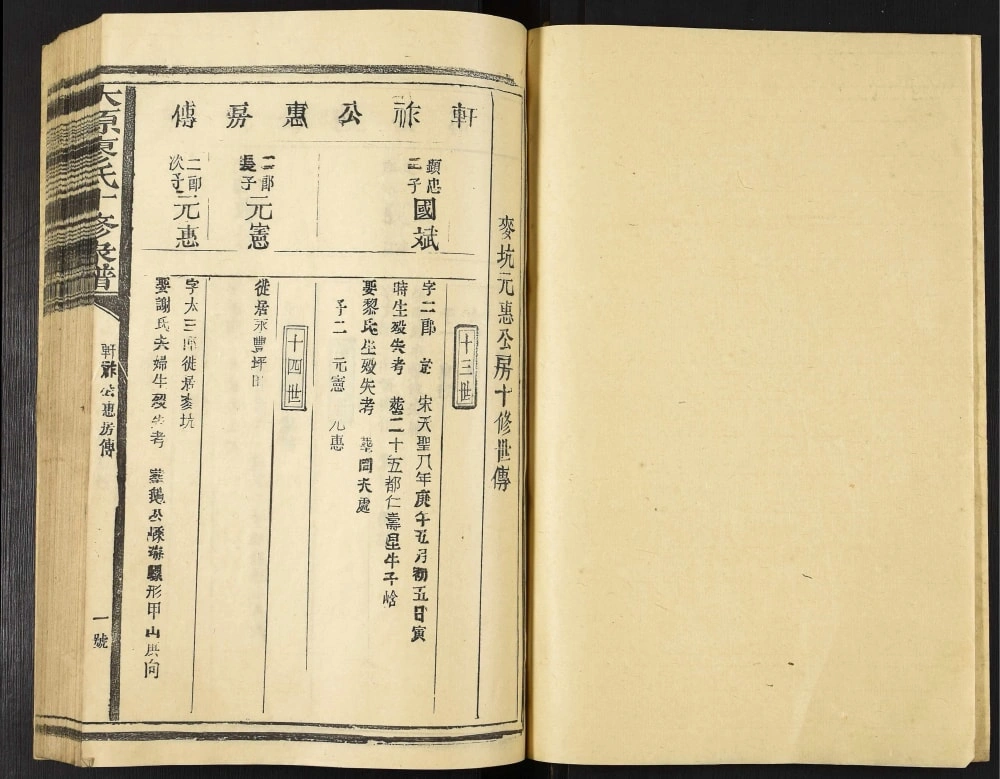 麥坑元惠公房十修世傳
軒祚公惠房傳
十三世
顯忠
三子
國斌
字二郎 諱 宋天聖八年庚午五月初五日寅
時生歿失考 葬二十五都仁壽星牛子峆
娶黎氏生歿失考 葬同夫處
子二 元憲 元惠
十四世
二郎
長子
元憲
徙居永豐坪
二郎
次子
元惠
字太三郎徙居麥坑
娶謝氏夫婦生歿失考 葬鵝公 形甲山庚向
太原 氏十修族譜
軒祚公惠房傳
一號